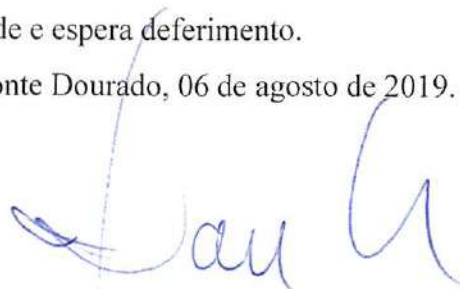 de e espera deferimento.
onte Dourado, 06 de agosto de 2019.